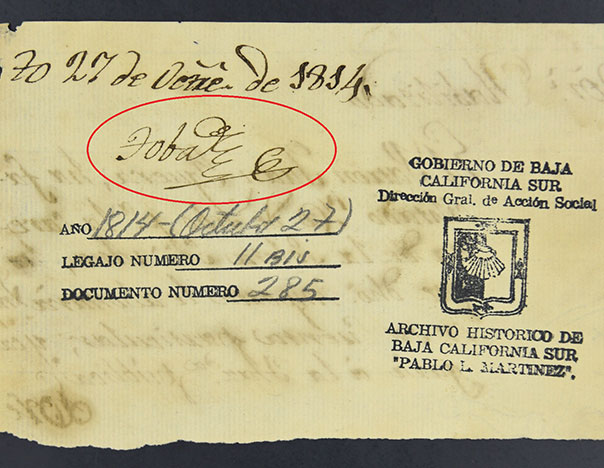 to 27 de Octre. de 1814.
Tobar
AÑO 1814-(Octubre 27)
LEGAJO NUMERO 11 BIS
DOCUMENTO NUMERO 285
GOBIERNO DE BAJA
CALIFORNIA SUR
Dirección Gral. de Acción Social
ARCHIVO HISTORICO DE
BAJA CALIFORNIA SUR
"PABLO L. MARTINEZ".